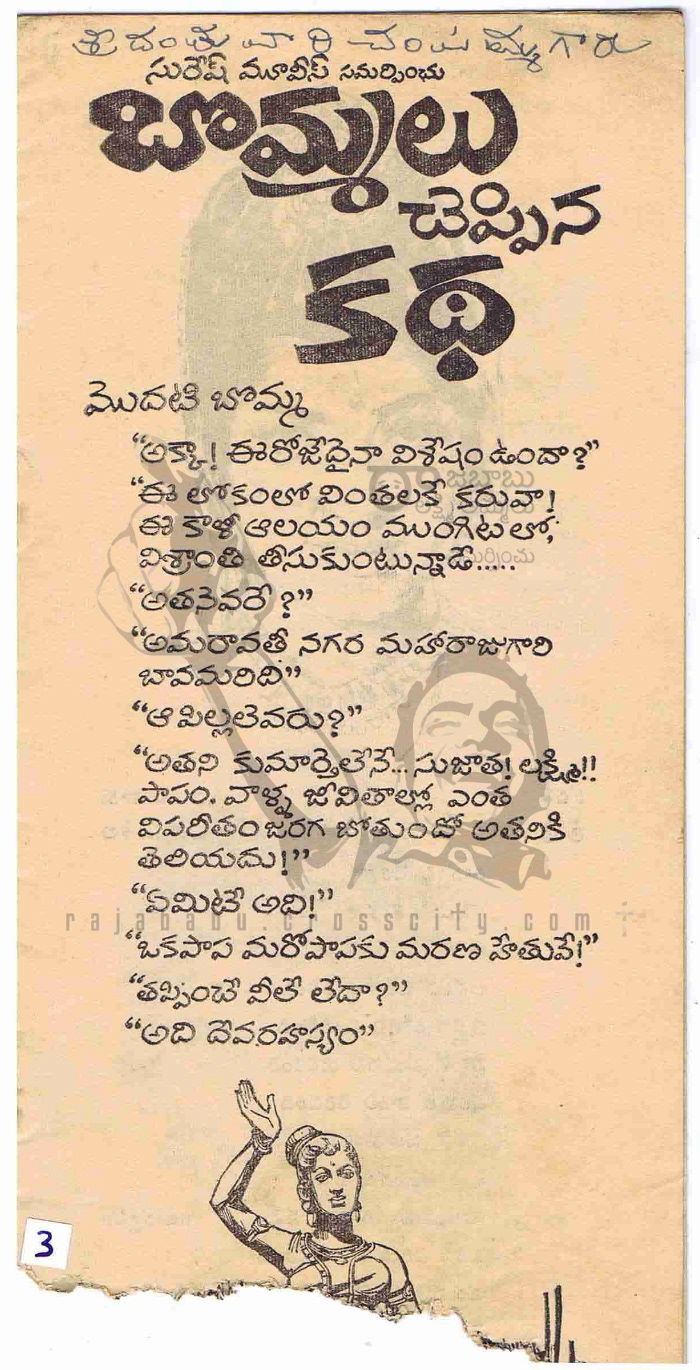 శ్రీ దంతు వారి చంపమ్మ గారు
సురేష్ మూవీస్ సమర్పించు
బొమ్మలు
చెప్పిన
కథ
మొదటి బొమ్మ
"అక్కా! ఈరోజేదైనా విశేషం ఉందా?"
"ఈ లోకంలో వింతలకే కరువా!
ఈ కాళీ ఆలయం ముంగిటలో,
విశ్రాంతి తీసుకుంటున్నాడే.....
"అతనెవరే?"
"అమరావతీ నగర మహారాజుగారి
బావమరిది"
"ఆ పిల్లలెవరు?"
"అతని కుమార్తెలేనే... సుజాత! లక్ష్మి!!
పాపం. వాళ్ళ జీవితాల్లో ఎంత
విపరీతం జరగ బోతుందో అతనికి
తెలియదు!"
"ఏమిటే అది!"
rajababu.crosscity.com
"ఒకపాప మరోపాపకు మరణ హేతువే!"
"తప్పించే వీలే లేదా?"
"అది దైవరహస్యం"
3